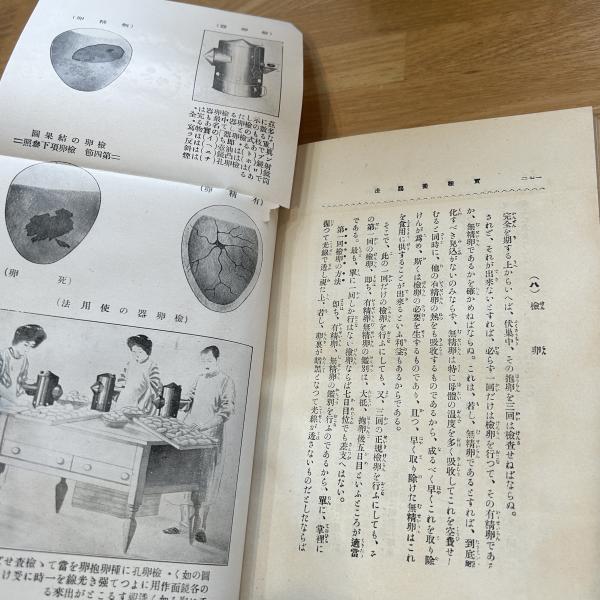 實驗養鷄法
(八) 檢卵
完全を期する上からいへば、伏巢中、その抱卵を三回は檢査せねばならぬ。
されど、それが出來ないとすれば、必らず一回だけは檢卵を行つて、その有精卵であ
か、無精卵であるかを確かめねばならぬ。これは、若し、無精卵であるとすれば、到底
化すべき見込がないのみならず、無精卵は特に母體の溫度を多く吸收してこれを空費せし
むると同時に、他の有精卵の熱をも吸收するものであるから、成るべく早くこれを取り除
けんが爲め、斯くは檢卵の必要を生ずるものであり、且つ、早く取り除けた無精卵はこれ
を食用に供することが出來るといふ利益もあるからである。
そこで、此の一回だけの檢卵を行ふにしても、又、三回の正規檢卵を行ふにしても、そ
の第一回の檢卵、即ち、有精卵無精卵の鑑別は、大抵、抱卵後五日目といふところが適當
である。最も、單に一回しか行はない檢卵ならば七日目位でも差支へはない。
第一回檢卵の方法 即ち、有精卵、無精卵の鑑別を行ふのであるから、單に、掌裡に
握つて光線で透し視た上、若し、卵裏が暗黑になつて光線が透さないものだとしたならば
(檢卵器)
(無精卵)
檢卵の結果圖
＝第四節 檢卵項下參照＝
(有精卵)
(死卵)
(檢卵器の使用法)
圖の如く・檢卵孔に種卵抱卵を當てゝ檢査せ